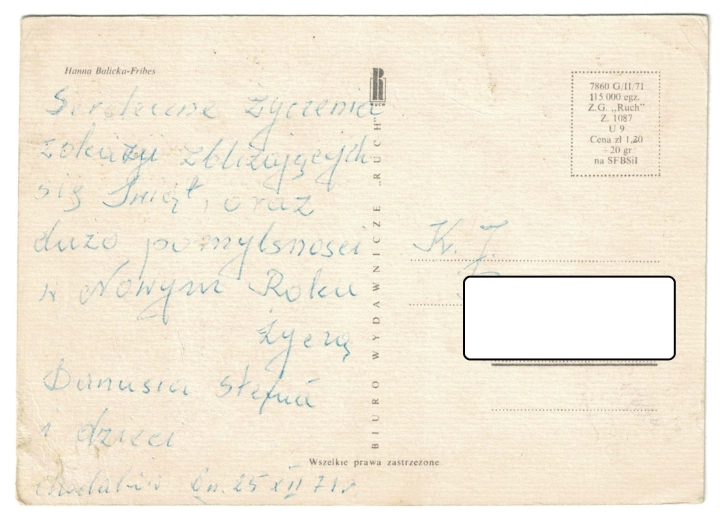 Hanna Balicka-Fribes
Serdeczne życzenia
z okazji zbliżających
się Świąt, oraz
dużo pomyślności
w Nowym Roku
życzą
Danusia Stefan
i dzieci
dn. 25 XII 71 r.
BIURO WYDAWNICZE „RUCH”
Wszelkie prawa zastrzeżone
7860 G/II/71
115 000 egz.
Z.G. „Ruch”
Z. 1087
U 9
Cena zł 1,80
+20 gr
na SFBSiI
K. J.